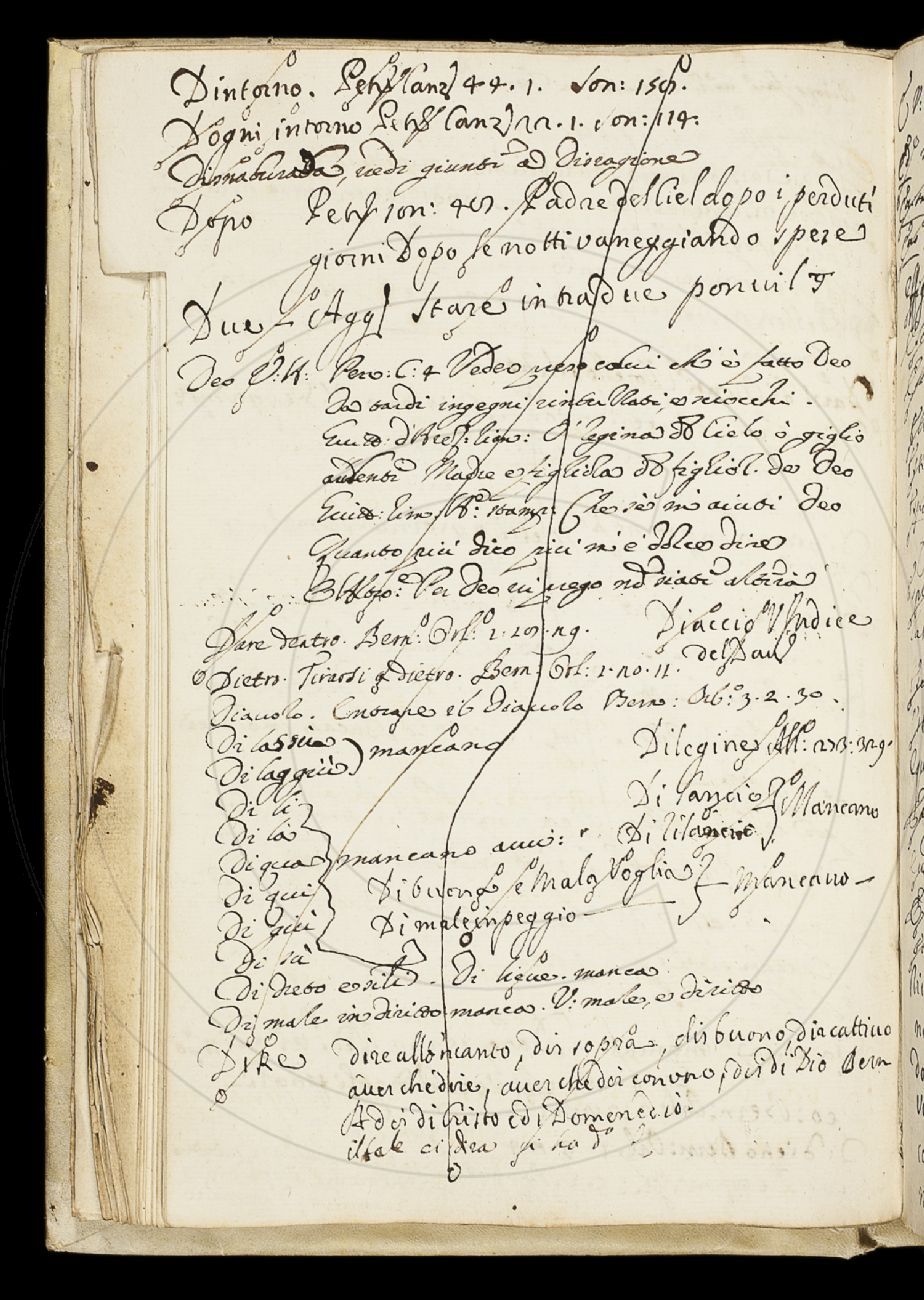 Dintorno. Petr. Canz 44. 1. Son: 159.
Dogni intorno Petr. Canz 22. 1. Son: 114.
Disnaturata, vedi giunti a Disragione
Dopo Petr. son: 49. Padre del Ciel dopo i perduti
giorni Dopo le notti vaneggiando spese
Due Agg Stare intra due
Deo V: A: Perv: C: 4 Vedeo colui ch'è fatto Deo
Da tardi ingegni rintuzzati, e sciocchi.
Guitt: d'Arez: lim: O' Regina del Cielo o giglio
aulenti Madre e figliola del figliol. de Deo
Guitt: lim stamp: Che se m'aiuti Deo
Quanto più dico più m'è dolce dire
Per Deo vi prego
Dare dentro. Bern: Orl: 1. 29. Diaccio V Indice
Dietro. Tirarsi dietro. Bern. Orl: 1. 20. 11. del Dav
Diavolo. Entrare il Diavolo Bern: Orl: 3. 2. 30.
Di lassù
Di laggiù mancano Dilegine All: 273: 329.
Di lì Di lancio Mancano
Di là
Di qua mancano avv:
Di qui Di buona e Mala Voglia Mancano
Di quì Di male in peggio
Di su
Di dreto e simili. Di lieve. manca
Di male in diritto manca. V. male, e diritto
Dire dire all'oncanto, dir sopra, dir buono, dir cattivo
aver che dire, aver che dir con uno, dir di Dio Bern
A dir di Cristo e di Domeneddio.
il tale ci